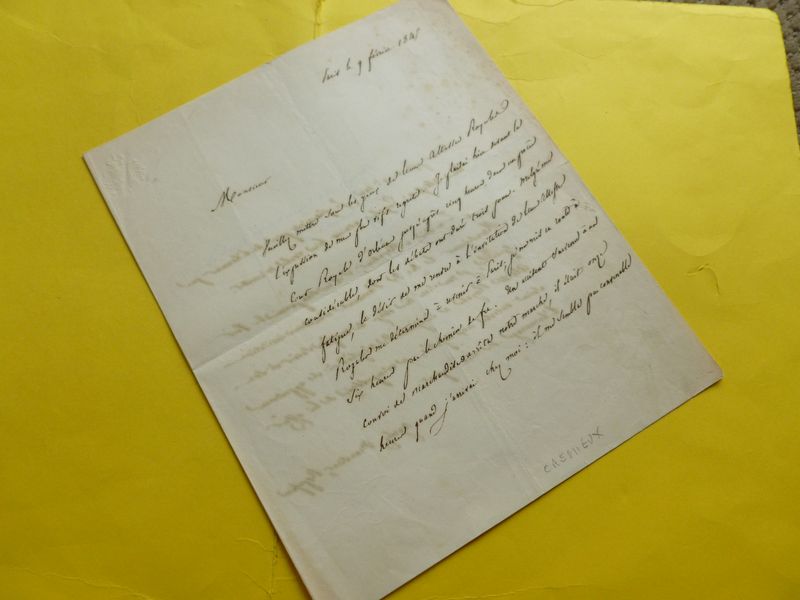 Paris le 9 février 184
Monsieur
Veuillez mettre sous les yeux de leurs Altesses Royales
l'expression de mes plus vifs regrets. Je plaidai hier devant la
Cour Royale d'Orléans jusqu'après cinq heures dans un procès
considérable, dont les débats ont duré trois jours. Malgré ma
fatigue, le désir de me rendre à l'invitation de leurs Altesses
Royales me détermina à revenir à Paris, je me mis en route à
six heures par le chemin de fer. Un accident survenu à un
convoi de marchandises arrêta notre marche, il était onze
heures quand j'arrivai chez moi : il me sembla peu convenable
CREMIEUX